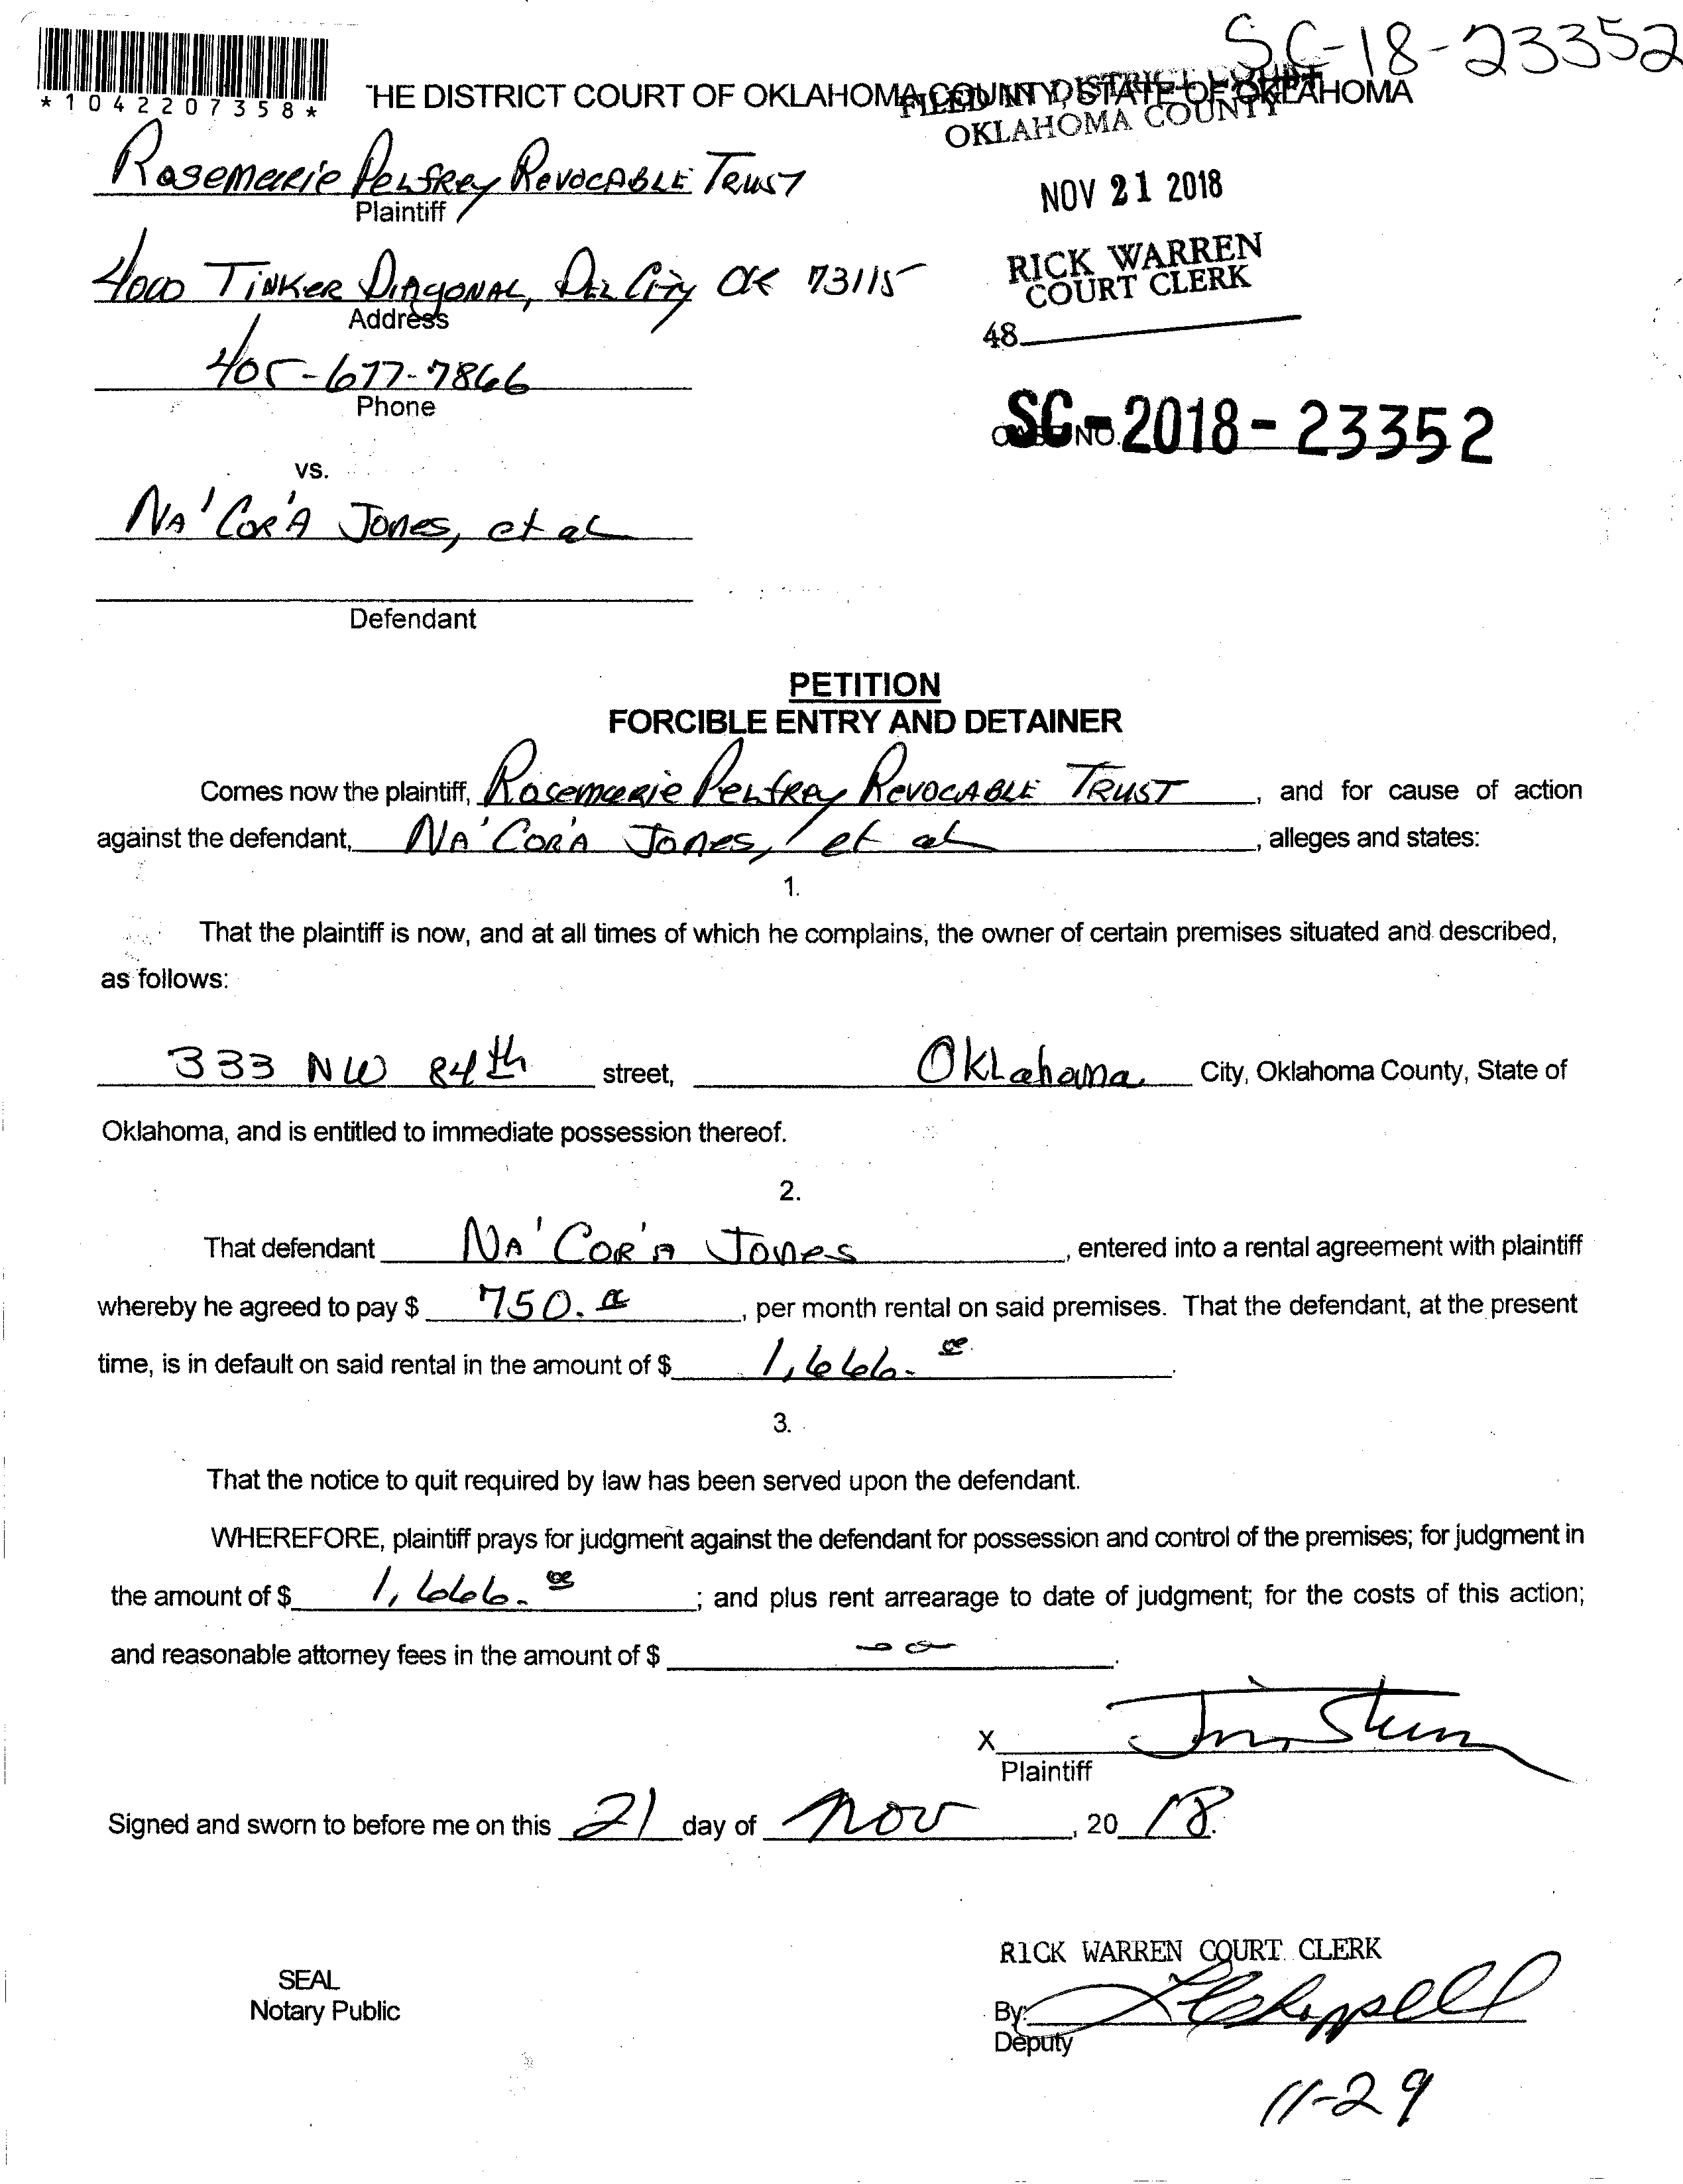 SC-18-23352
*1042207358*
THE DISTRICT COURT OF OKLAHOMA COUNTY, STATE OF OKLAHOMA
FILED IN DISTRICT COURT
OKLAHOMA COUNTY
Rosemarie Pelfrey Revocable Trust
Plaintiff
NOV 21 2018
4000 Tinker Diagonal, Del City OK 73115
Address
RICK WARREN
COURT CLERK
48
405-677-7866
Phone
CASE NO. SC-2018-23352
vs.
Na'Cor'a Jones, et al
Defendant
PETITION
FORCIBLE ENTRY AND DETAINER
Comes now the plaintiff, Rosemarie Pelfrey Revocable Trust, and for cause of action
against the defendant, Na'Cor'a Jones, et al, alleges and states:
1.
That the plaintiff is now, and at all times of which he complains, the owner of certain premises situated and described,
as follows:
333 NW 84th street, Oklahoma City, Oklahoma County, State of
Oklahoma, and is entitled to immediate possession thereof.
2.
That defendant Na'Cor'a Jones, entered into a rental agreement with plaintiff
whereby he agreed to pay $ 750.00, per month rental on said premises. That the defendant, at the present
time, is in default on said rental in the amount of $ 1,666.00.
3.
That the notice to quit required by law has been served upon the defendant.
WHEREFORE, plaintiff prays for judgment against the defendant for possession and control of the premises; for judgment in
the amount of $ 1,666.00; and plus rent arrearage to date of judgment; for the costs of this action;
and reasonable attorney fees in the amount of $ -0-.
X
Plaintiff
Signed and sworn to before me on this 21 day of Nov, 20 18.
RICK WARREN COURT CLERK
SEAL
Notary Public
By:
Deputy
11-29